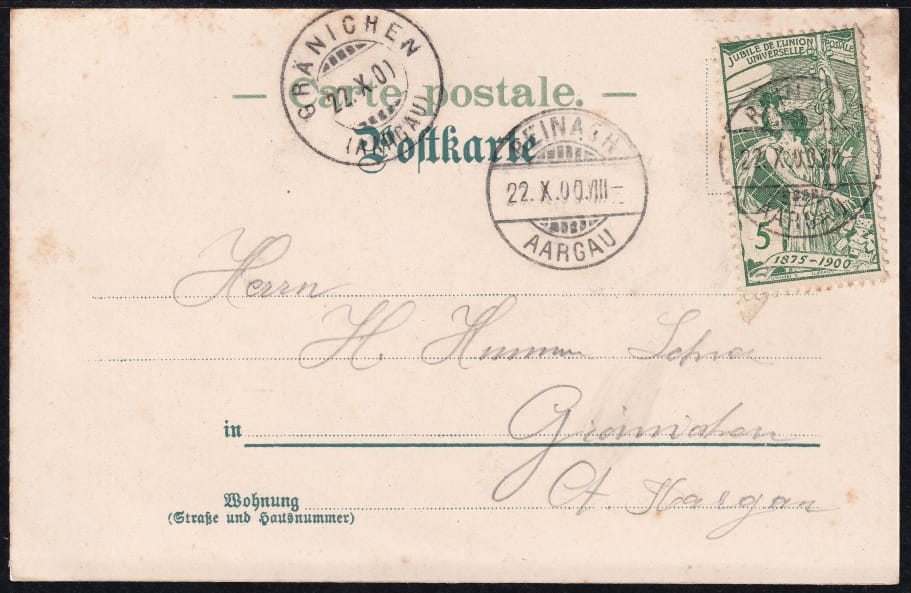 GRÄNICHEN
22.X.00
(AARGAU)
— Carte postale. —
Postkarte
REINACH
22.X.00.VIII–
AARGAU
JUBILÉ DE L'UNION
POSTALE
UNIVERSELLE
22.X.00.VIII
AARGAU
5
1875–1900
Herrn
H. Hummm
in Gränichen
Ct. Aargau
Wohnung
(Straße und Hausnummer)